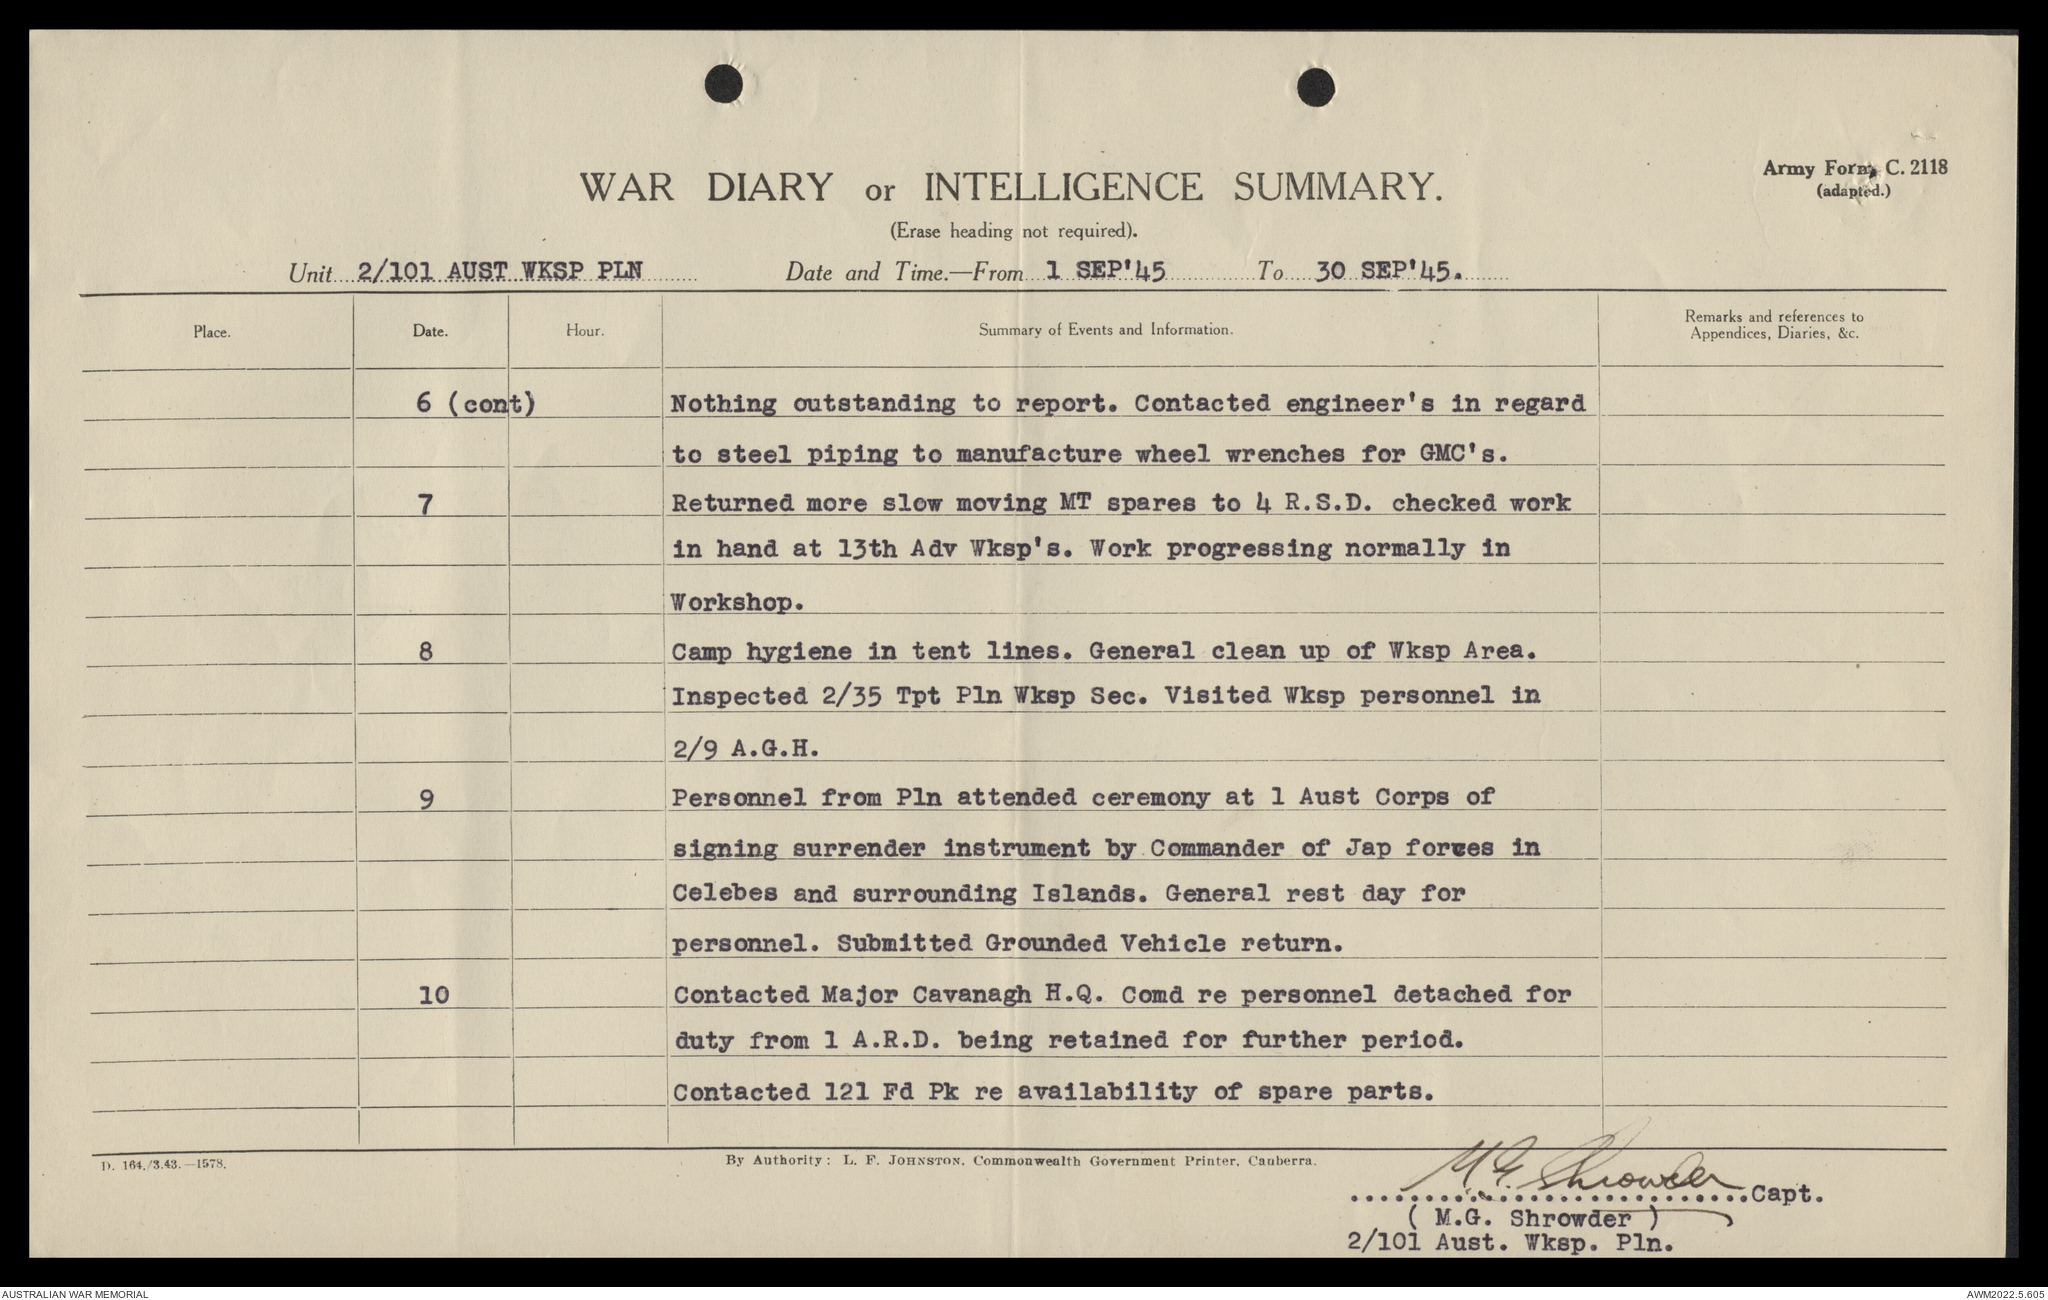 Army Form C. 2118
(adapted.)
WAR DIARY or INTELLIGENCE SUMMARY.
(Erase heading not required).
Unit 2/101 AUST WKSP PLN Date and Time.—From 1 SEP'45 To 30 SEP'45.
Place. Date. Hour. Summary of Events and Information. Remarks and references to
Appendices, Diaries, &c.
6 (cont) Nothing outstanding to report. Contacted engineer's in regard
to steel piping to manufacture wheel wrenches for GMC's.
7 Returned more slow moving MT spares to 4 R.S.D. checked work
in hand at 13th Adv Wksp's. Work progressing normally in
Workshop.
8 Camp hygiene in tent lines. General clean up of Wksp Area.
Inspected 2/35 Tpt Pln Wksp Sec. Visited Wksp personnel in
2/9 A.G.H.
9 Personnel from Pln attended ceremony at 1 Aust Corps of
signing surrender instrument by Commander of Jap forces in
Celebes and surrounding Islands. General rest day for
personnel. Submitted Grounded Vehicle return.
10 Contacted Major Cavanagh H.Q. Comd re personnel detached for
duty from 1 A.R.D. being retained for further period.
Contacted 121 Fd Pk re availability of spare parts.
D. 164./3.43.—1578. By Authority: L. F. JOHNSTON, Commonwealth Government Printer, Canberra.
M G Shrowder
..............................Capt.
( M.G. Shrowder )
2/101 Aust. Wksp. Pln.
AUSTRALIAN WAR MEMORIAL AWM2022.5.605